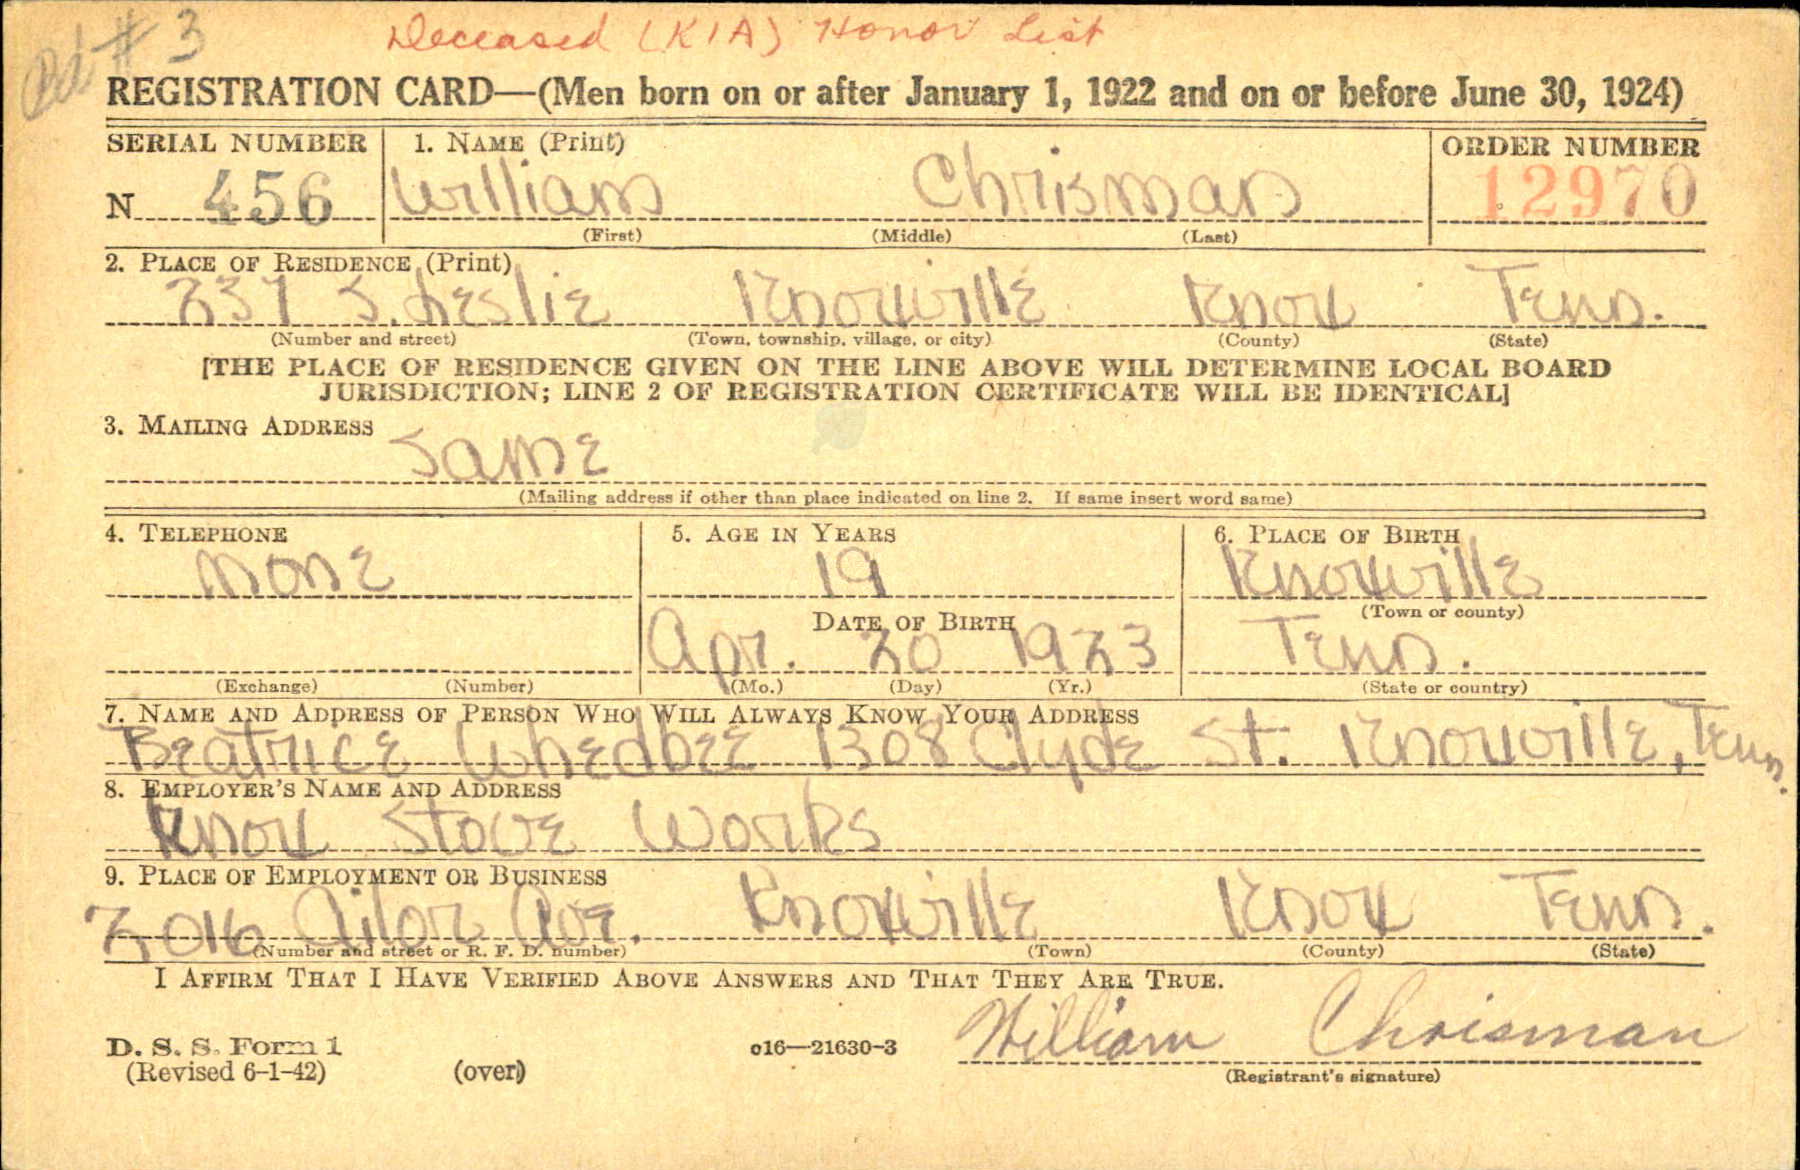 Bd # 3
Deceased (KIA) Honor List
REGISTRATION CARD—(Men born on or after January 1, 1922 and on or before June 30, 1924)
SERIAL NUMBER 1. NAME (Print) ORDER NUMBER
N 456 William Chrisman 12970
(First) (Middle) (Last)
2. PLACE OF RESIDENCE (Print)
237 S. Leslie Knoxville Knox Tenn.
(Number and street) (Town, township, village, or city) (County) (State)
[THE PLACE OF RESIDENCE GIVEN ON THE LINE ABOVE WILL DETERMINE LOCAL BOARD
JURISDICTION; LINE 2 OF REGISTRATION CERTIFICATE WILL BE IDENTICAL]
3. MAILING ADDRESS
Same
(Mailing address if other than place indicated on line 2. If same insert word same)
4. TELEPHONE 5. AGE IN YEARS 6. PLACE OF BIRTH
None 19 Knoxville
(Town or county)
DATE OF BIRTH
Apr. 20 1923 Tenn.
(Exchange) (Number) (Mo.) (Day) (Yr.) (State or country)
7. NAME AND ADDRESS OF PERSON WHO WILL ALWAYS KNOW YOUR ADDRESS
Beatrice Whedbee 1308 Clyde St. Knoxville, Tenn.
8. EMPLOYER'S NAME AND ADDRESS
Knox Stove Works
9. PLACE OF EMPLOYMENT OR BUSINESS
2016 Ailor Ave. Knoxville Knox Tenn.
(Number and street or R. F. D. number) (Town) (County) (State)
I AFFIRM THAT I HAVE VERIFIED ABOVE ANSWERS AND THAT THEY ARE TRUE.
William Chrisman
D. S. S. Form 1 c16—21630-3
(Revised 6-1-42) (over) (Registrant's signature)